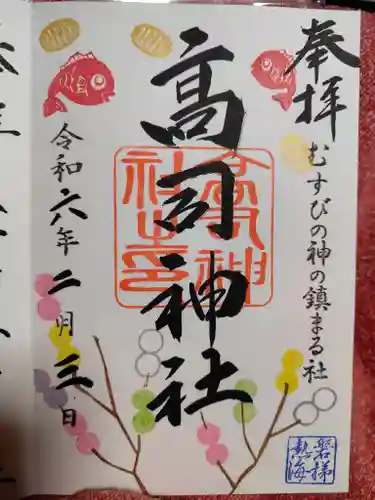 奉拝
むすびの神の鎮まる社
高司神社
令和六年二月三日
磐梯
熱海